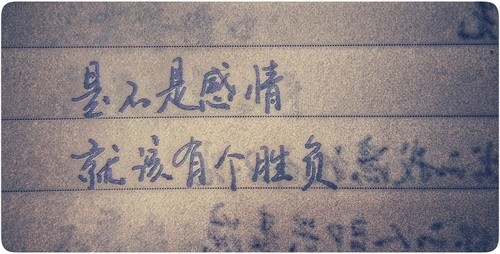 是不是感情
就该有个胜负